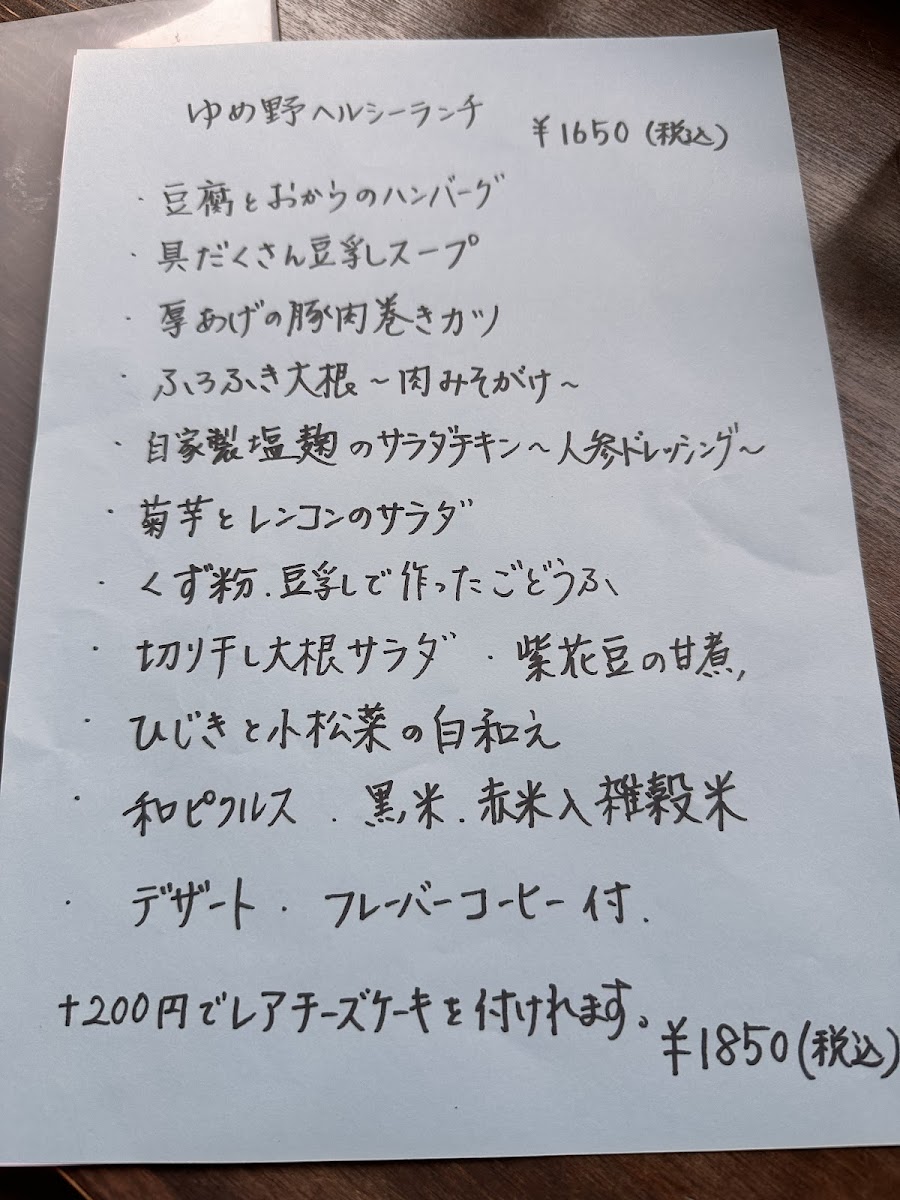 ゆめ野ヘルシーランチ ¥1650(税込)
・豆腐とおからのハンバーグ
・具だくさん豆乳しスープ
・厚あげの豚肉巻きカツ
・ふろふき大根~肉みそがけ~
・自家製塩麹のサラダチキン~人参ドレッシング~
・菊芋とレンコンのサラダ
・くず粉.豆乳しで作ったごどうふ
・切り干し大根サラダ ・紫花豆の甘煮,
・ひじきと小松菜の白和え
・和ピクルス ・黒米.赤米入雑穀米
・デザート・フレーバーコーヒー付.
+200円でレアチーズケーキを付けれます。
¥1850(税込)